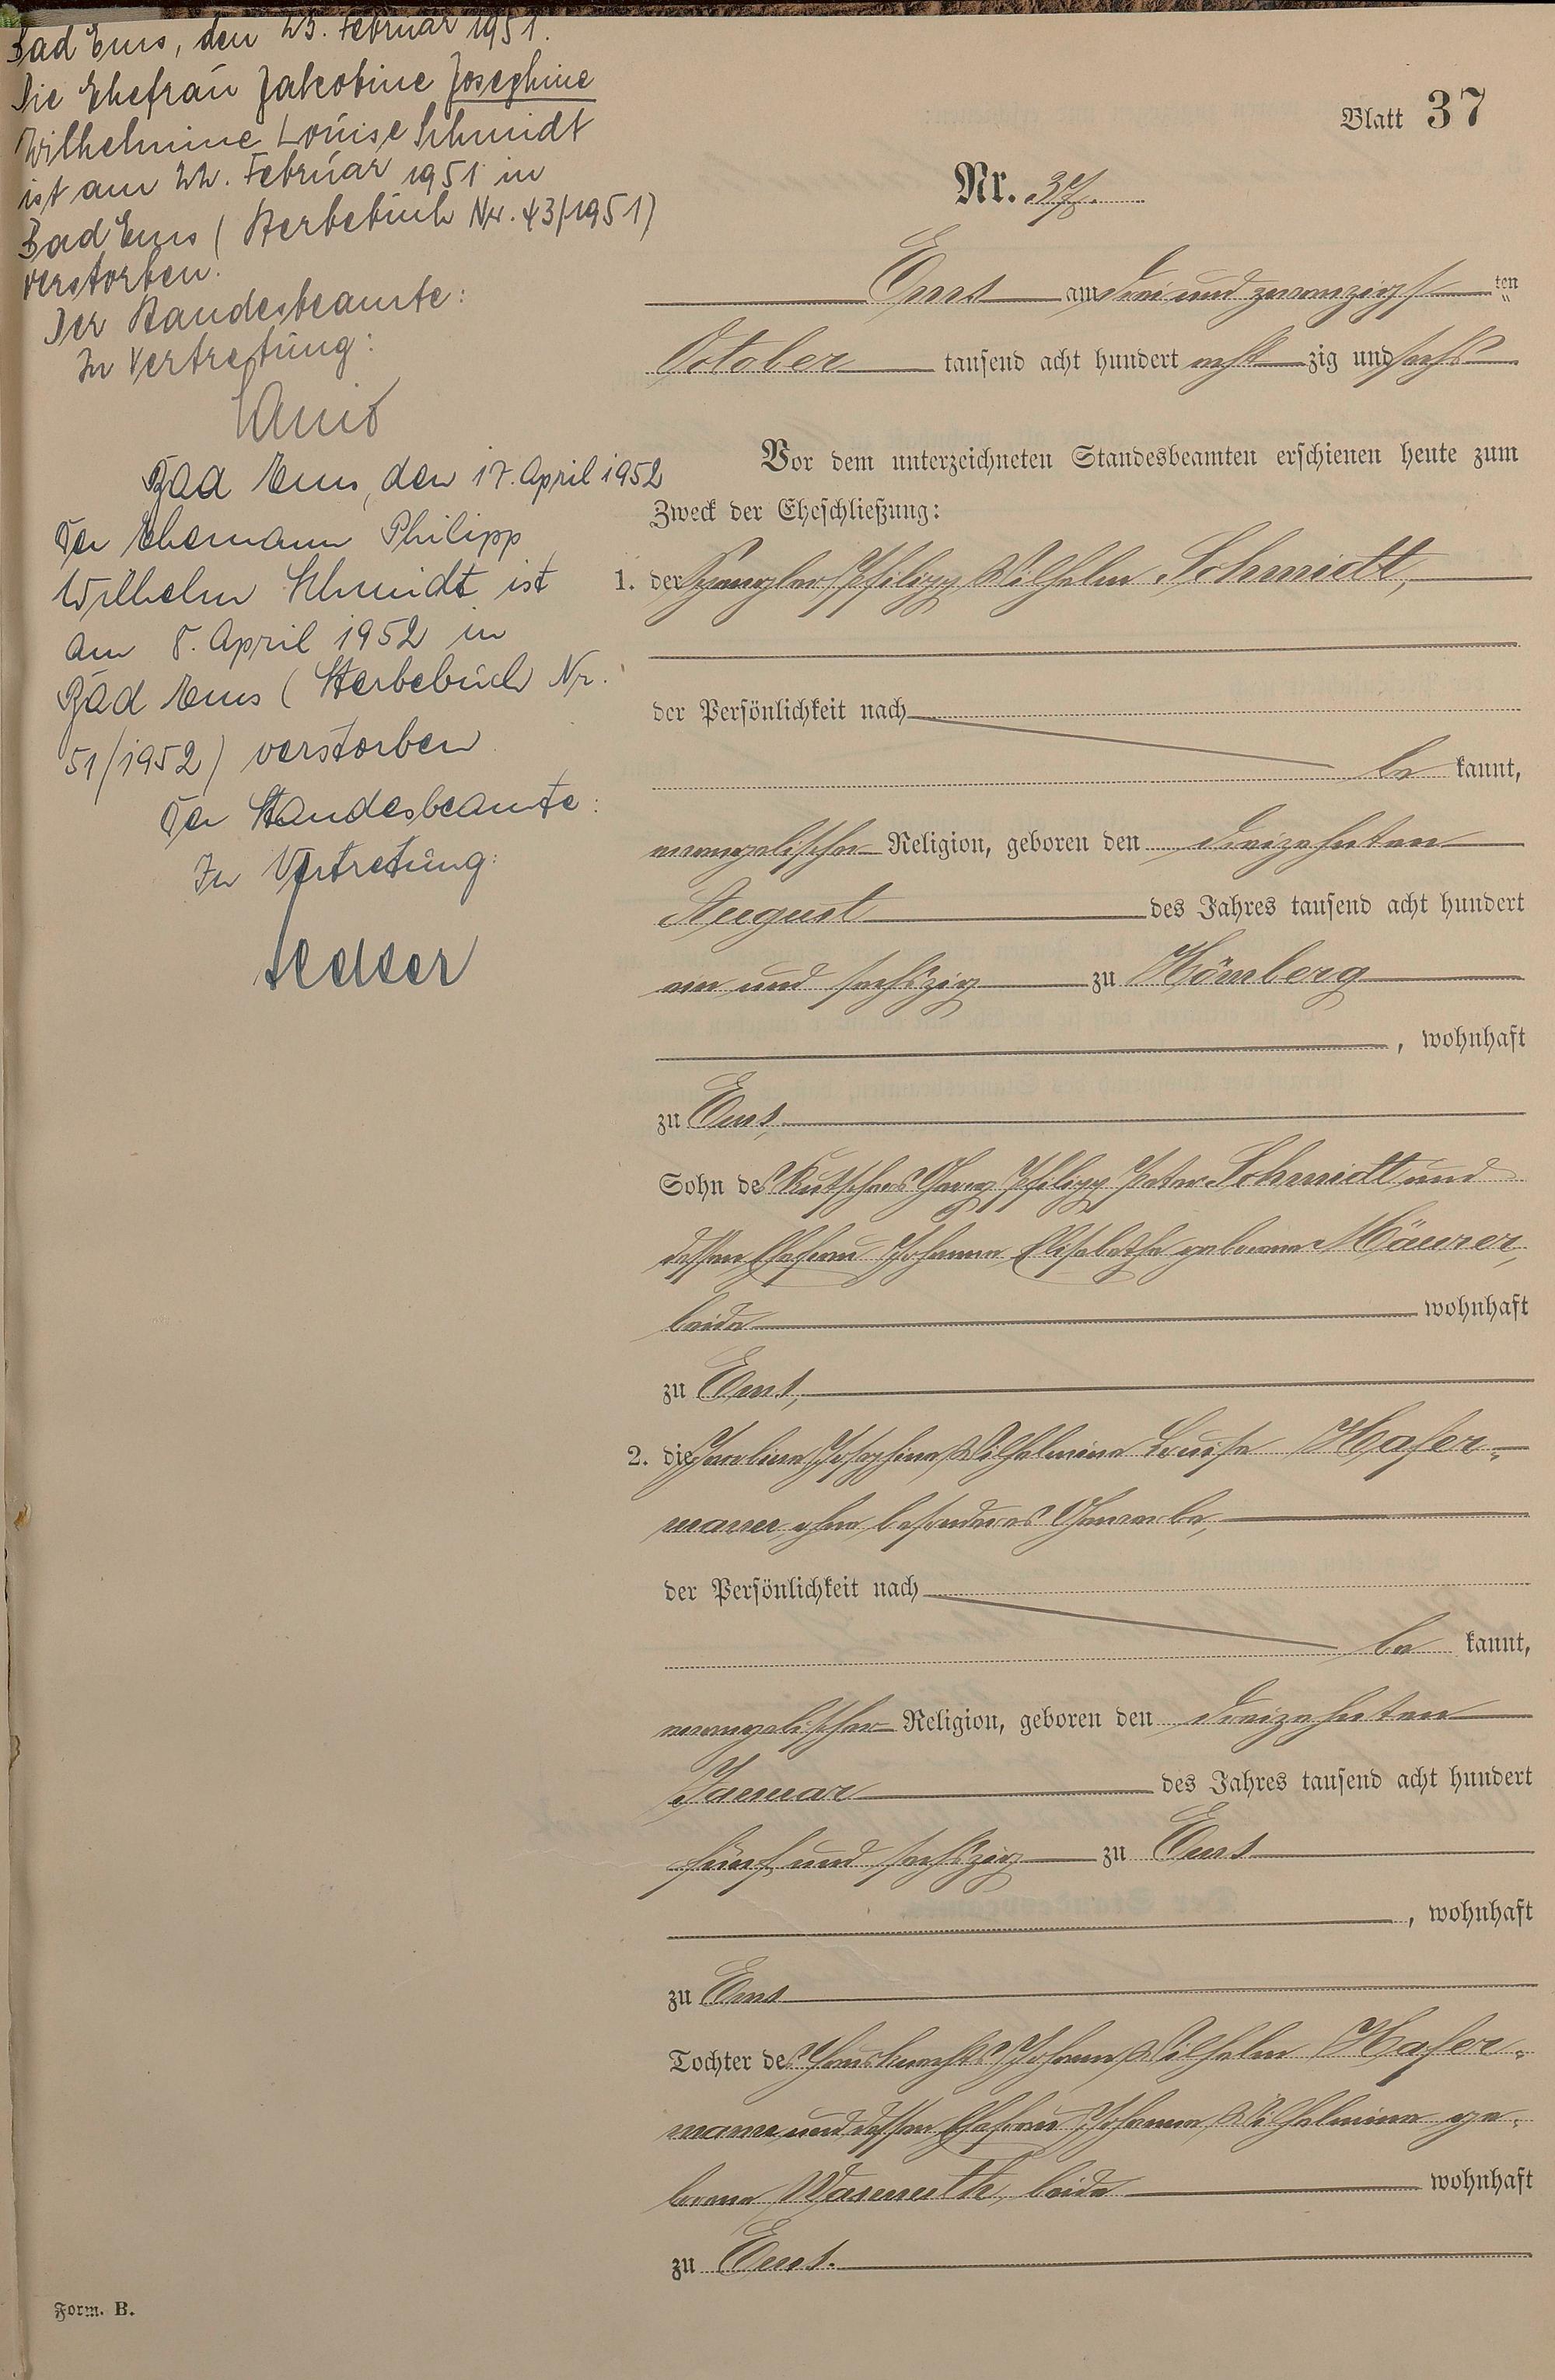 Bad Ems, den 23. Februar 1951.
Die Ehefrau Jakobine Josephine
Wilhelmine Louise Schmidt
ist am 22. Februar 1951 in
Bad Ems (Sterbebuch Nr. 43/1951)
verstorben.
Der Standesbeamte:
In Vertretung:
Bad Ems, den 17. April 1952
Der Ehemann Philipp
Wilhelm Schmidt ist
am 8. April 1952 in
Bad Ems (Sterbebuch Nr.
51/1952) verstorben
Der Standesbeamte:
In Vertretung:
Blatt 37
Nr. 37.
Ems am drei und zwanzigsten
October tausend acht hundert acht zig und sechs
Vor dem unterzeichneten Standesbeamten erschienen heute zum
Zweck der Eheschließung:
1. der Spengler Philipp Wilhelm Schmidt,
der Persönlichkeit nach
be kannt,
evangelischer Religion, geboren den dreizehnten
August des Jahres tausend acht hundert
ein und sechszig zu Hömberg
, wohnhaft
zu Ems,
Sohn des Kutschers Georg Philipp Peter Schmidt und
dessen Ehefrau Johanna Elisabetha geborene Mäurer,
beide wohnhaft
zu Ems,
2. die Jacobine Josephine Wilhelmine Louise Hafer-
mann, ohne besonderes Gewerbe,
der Persönlichkeit nach
be kannt,
evangelischer Religion, geboren den dreizehnten
Januar des Jahres tausend acht hundert
fünf und sechszig zu Ems
, wohnhaft
zu Ems
Tochter des Hausknechts Johann Wilhelm Hafer-
mann und dessen Ehefrau Johanna Wilhelmine ge-
borene Wasmuth, beide wohnhaft
zu Ems.
Form. B.